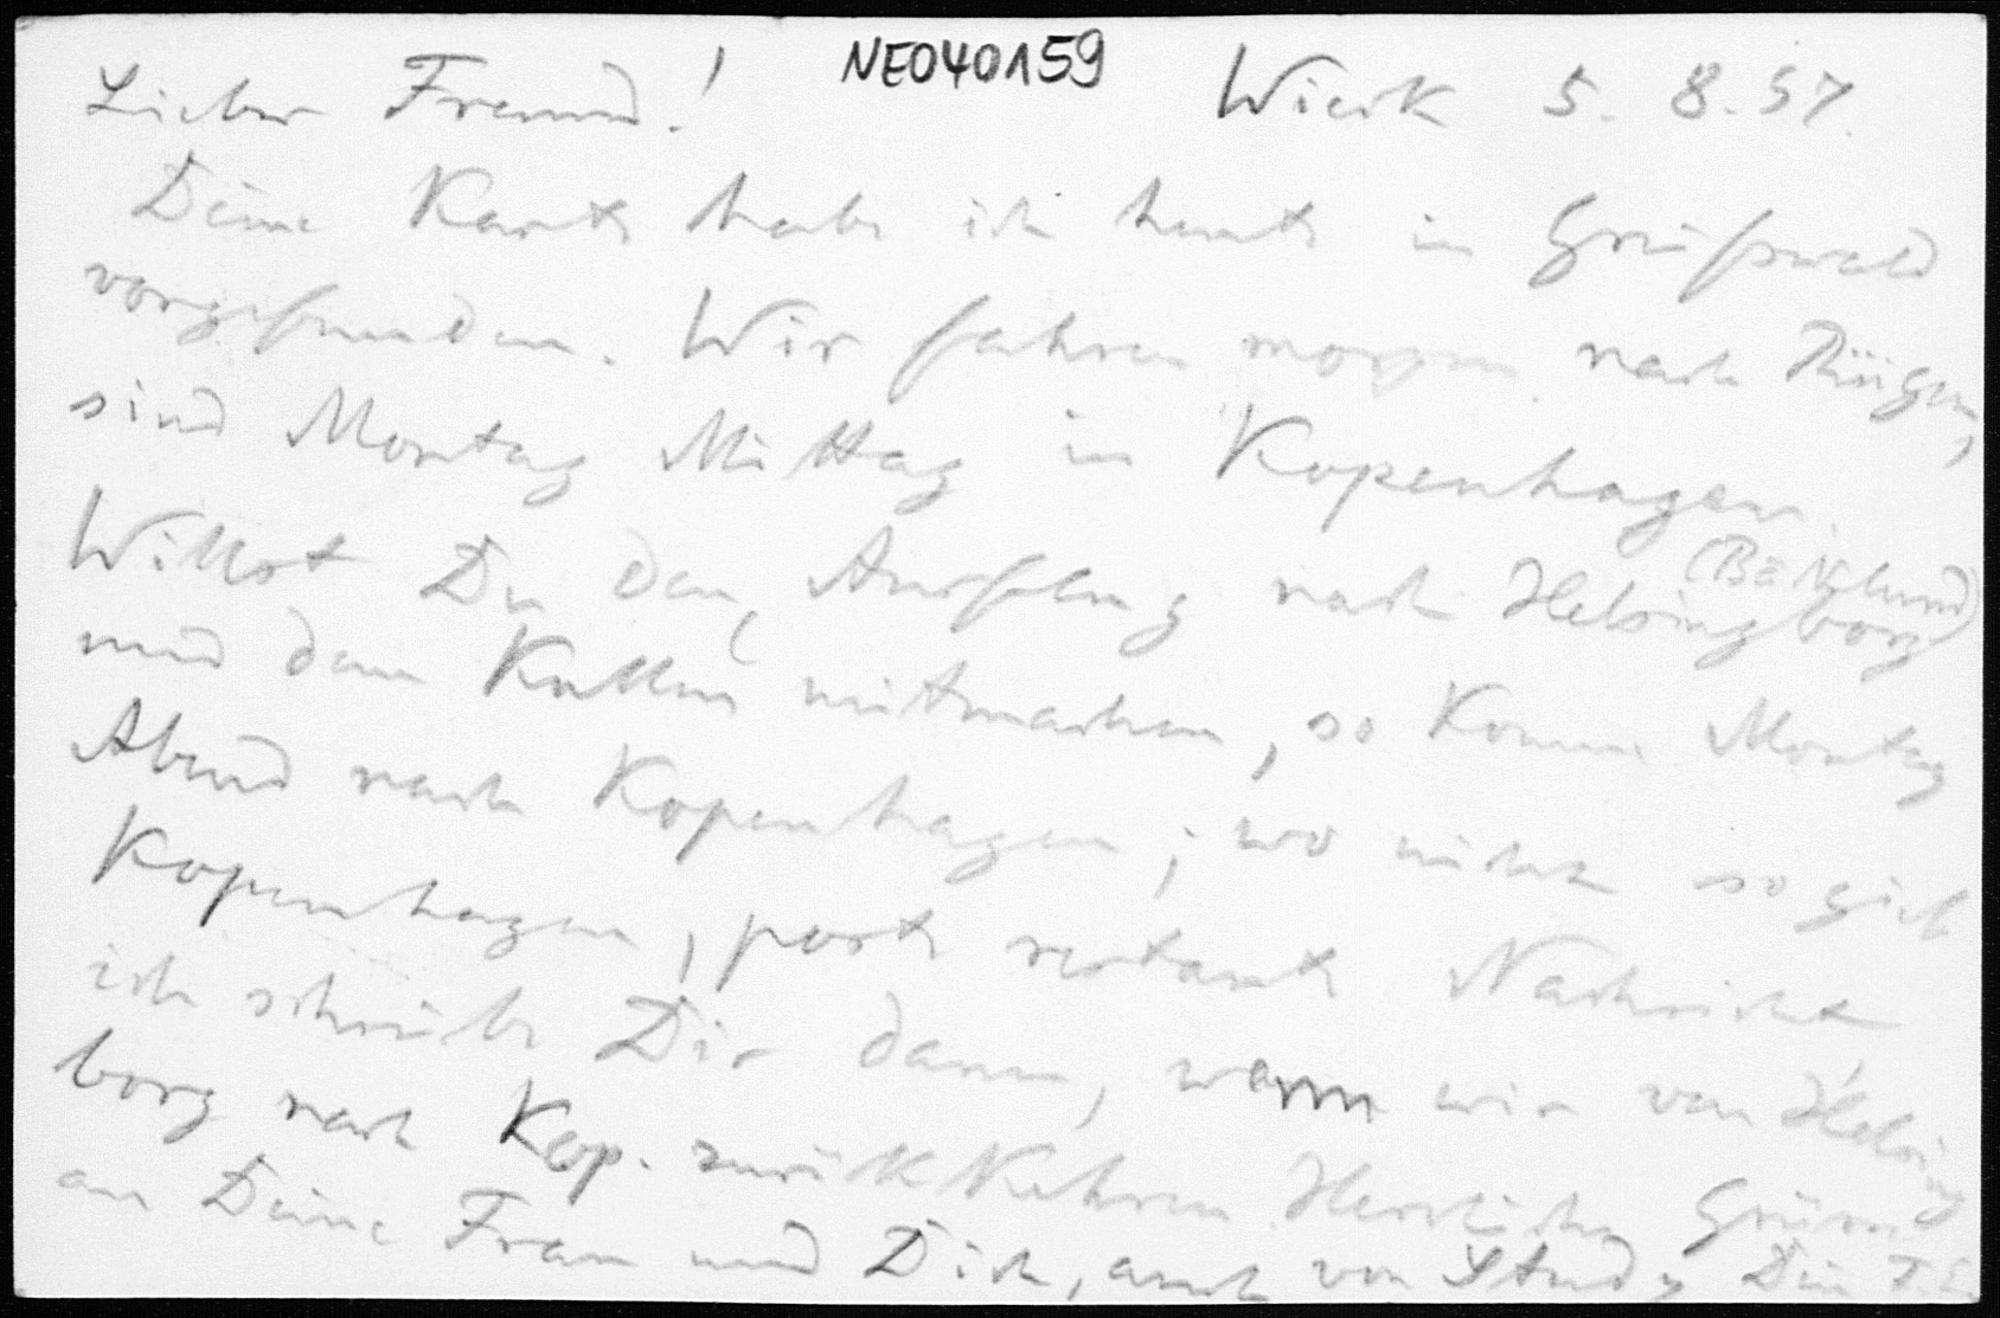 Lieber Freund! NE040159 Wieck 5. 8. 97.
Deine Karte habe ich heute in Greifswald
vorgefunden. Wir fahren morgen nach Rügen,
sind Montag Mittag in Kopenhagen.
(Bäcklund)
Willst Du den Ausflug nach Helsingborg
und dem Kullen mitmachen, so komme Montag
Abend nach Kopenhagen; wo nicht so gieb
Kopenhagen, poste restante Nachricht,
ich schreibe Dir dann, wann wir von Helsing
borg nach Kop. zurückkehren. Herzliche Grüsse
an Deine Frau und Dich, auch von Study Dein F. E.